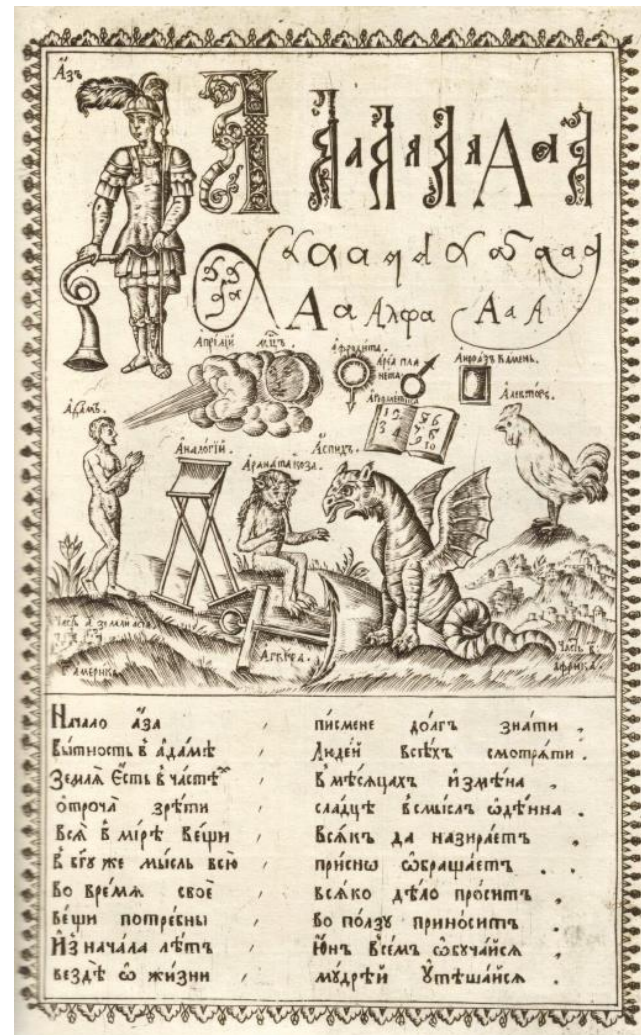 А҆зъ
А
А а А а А а А а А
а а а а а а а а а а
А а Алфа А а А
А҆прїлїй мц҃ъ
А҆фродита.
А҆реа пла
нета.
А҆нѳраѯъ камень.
А҆риѳметика
А҆лекторъ.
А҆дамъ.
А҆налогїй.
А҆спидъ.
1 2
3 4
5 6
7 8
9
10
А҆гкѵра.
Часть а
америка
Часть в
африка.
Начало а҆́за , пи́смене до́лгъ зна́ти ,
Бы́тность в̾ а҆да́мѣ , Люде́й всѣ́хъ смотря́ти .
Земля̀ Є҆́сть в̾ча́стѣⷯ , в̾мѣ́сяцахъ и҆змѣ́на ,
о҆троча̀ зрѣ́ти , сла́дцѣ в̾смы́слъ ѡ҆дѣ́нна .
вся̑ в̾ мі́рѣ Ве́щи , Вся́къ да назира́етъ ,
в̾ бг҃у же мы́сль всю̀ , при́снѡ ѡ҆браща́етъ .
Во вре́мѧ своѐ , вся́ко дѣ́ло про́ситъ ,
ве́щи потре́бны , во по́лзу прино́ситъ .
И҆з̾ нача́ла лѣ́тъ , Ю҆́нъ всѣ́мъ ѡ҆буча́йся ,
вездѣ̀ ѡ҆ жи́зни , му́дрѣй ᲂу҆тѣша́йся .